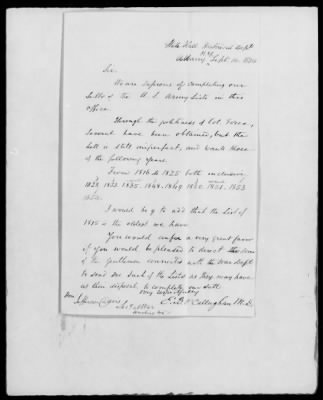 State Hall Historical Dept
Albany, Sept 10.
Sir,
We are desirous of completing our
Setts of the U. S. Army Lists in this
Office.
Through the politeness of Col.
Several have been obtained, but the
Sett is still imperfect, and wants those
of the following years.
From 1816 to 1825 both inclusive
1828. 1833. 1835. 1848. 1849. 1850. 1851. 1853
1854.
I would beg to add that the List of
1815 is the oldest we have.
You would confer a very great favor
if you would be pleased to direct some
of the Gentlemen connected with the War Dept
to send me such of the Lists as they may have
at their disposal to complete our Sett
very respectfully
E. B. O'Callaghan M.D.
Hon. Jefferson Davis
Sec. of War
Washington